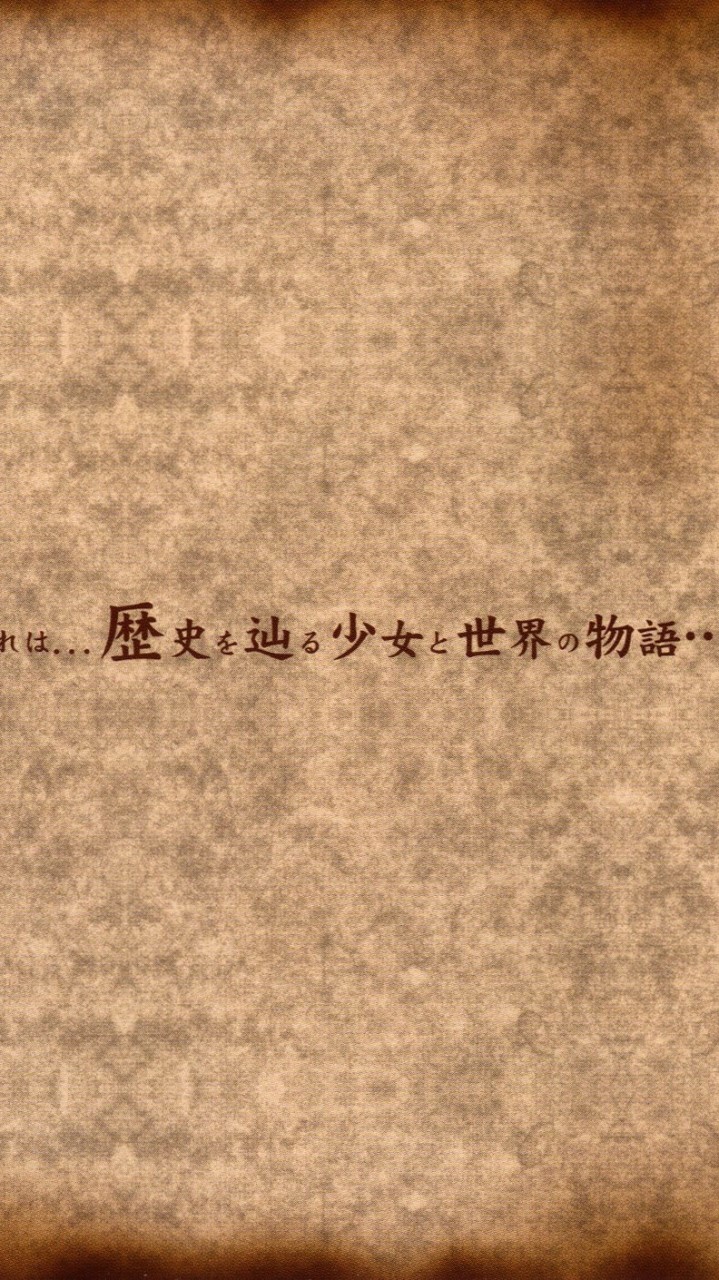 れは...歴史を辿る少女と世界の物語‥